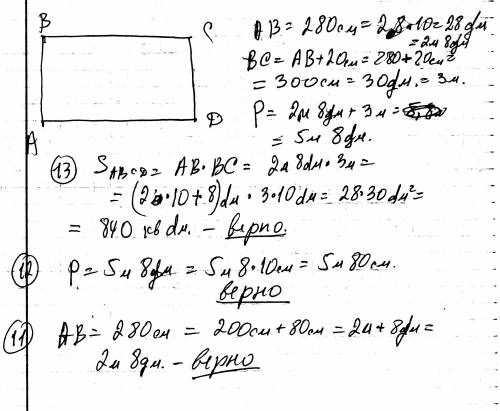 B C
A D
AB = 280 см = 28·10 = 28 дм
= 2м 8 дм
BC = AB + 20см = 280 + 20см =
= 300 см = 30 дм. = 3 м.
P = 2м 8 дм + 3 м =
= 5м 8 дм.
13 S ABCD = AB · BC = 2м 8дм · 3м =
= (2·10+8) дм · 3·10 дм = 28·30 дм² =
= 840 кв дм. – верно.
12 P = 5м 8 дм = 5м 8·10см = 5м 80см.
верно
11 AB = 280см = 200см + 80см = 2м + 8дм =
2м 8дм. – верно